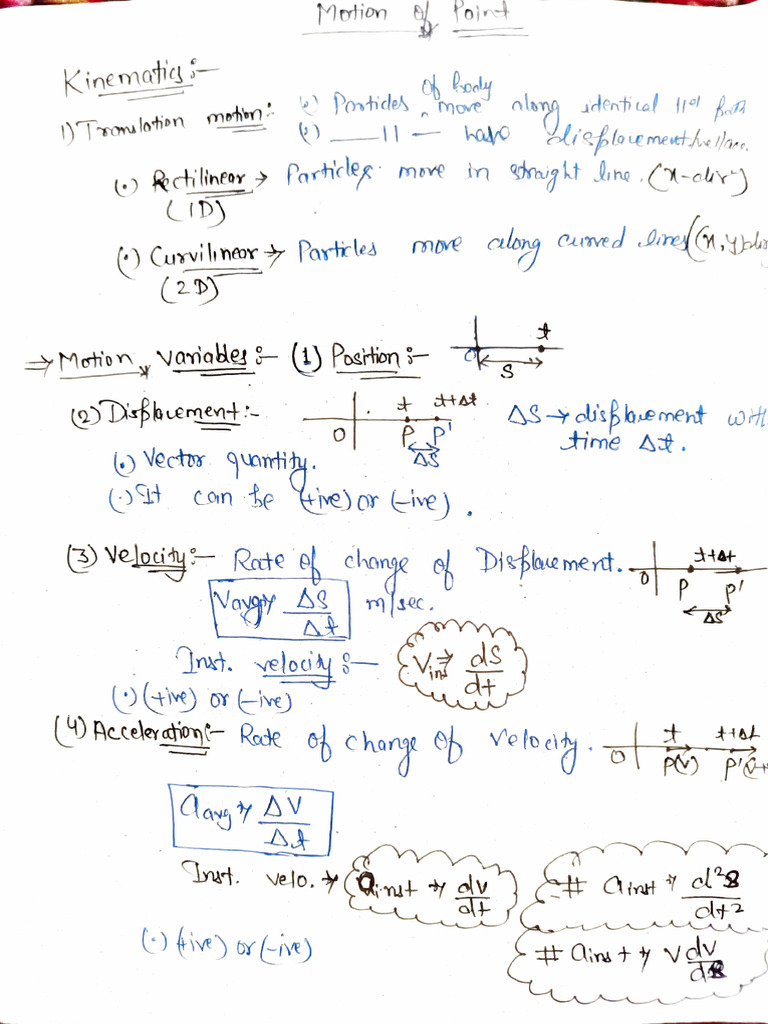 Motion of Point
Kinematics:-
1) Translation motion:- (•) Particles of body move along identical 11el path
(•) —— 11 — have displacement/vel/acc.
(•) Rectilinear → Particles move in straight line. (x-dirⁿ)
(1D)
(•) Curvilinear → Particles move along curved lines (x, y) dir
(2D)
⇒ Motion Variables:- (1) Position:- O t S
(2) Displacement:- O t t+Δt P P' ΔS ΔS → displacement with
time Δt.
(•) Vector quantity.
(•) It can be (+ive) or (-ive).
(3) Velocity:- Rate of change of Displacement. O t+Δt P P' ΔS
Vavg → ΔS/Δt m/sec.
Inst. velocity:- Vins → dS/dt
(•) (+ive) or (-ive)
(4) Acceleration:- Rate of change of velocity. O t t+Δt P(V) P'(V+
aavg → ΔV/Δt
Inst. velo. → ainst → dv/dt # ainst → d²S/dt²
(•) (+ive) or (-ive) # ainst → V dv/ds